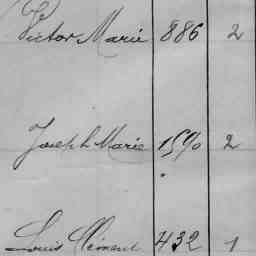 Victor Marie 886 2
Joseph Marie 1590 2
Louis Clément 432 1